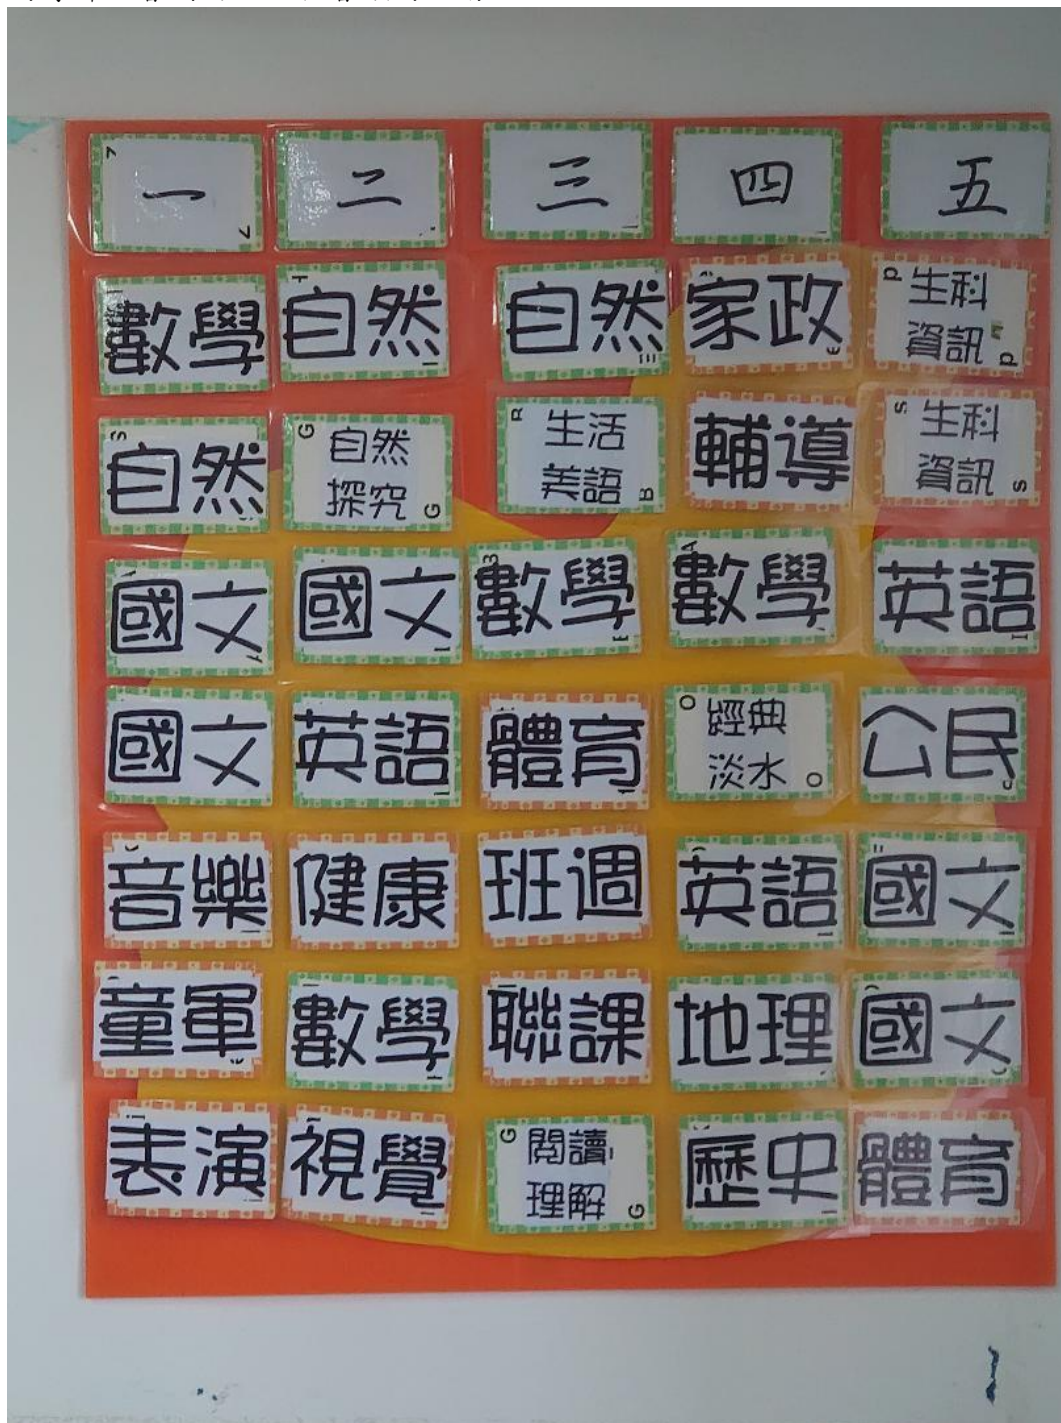 一 二 三 四 五
數學 自然 自然 家政 生科資訊
自然 自然探究 生活美語 輔導 生科資訊
國文 國文 數學 數學 英語
國文 英語 體育 經典淡水 公民
音樂 健康 班週 英語 國文
童軍 數學 聯課 地理 國文
表演 視覺 閱讀理解 歷史 體育